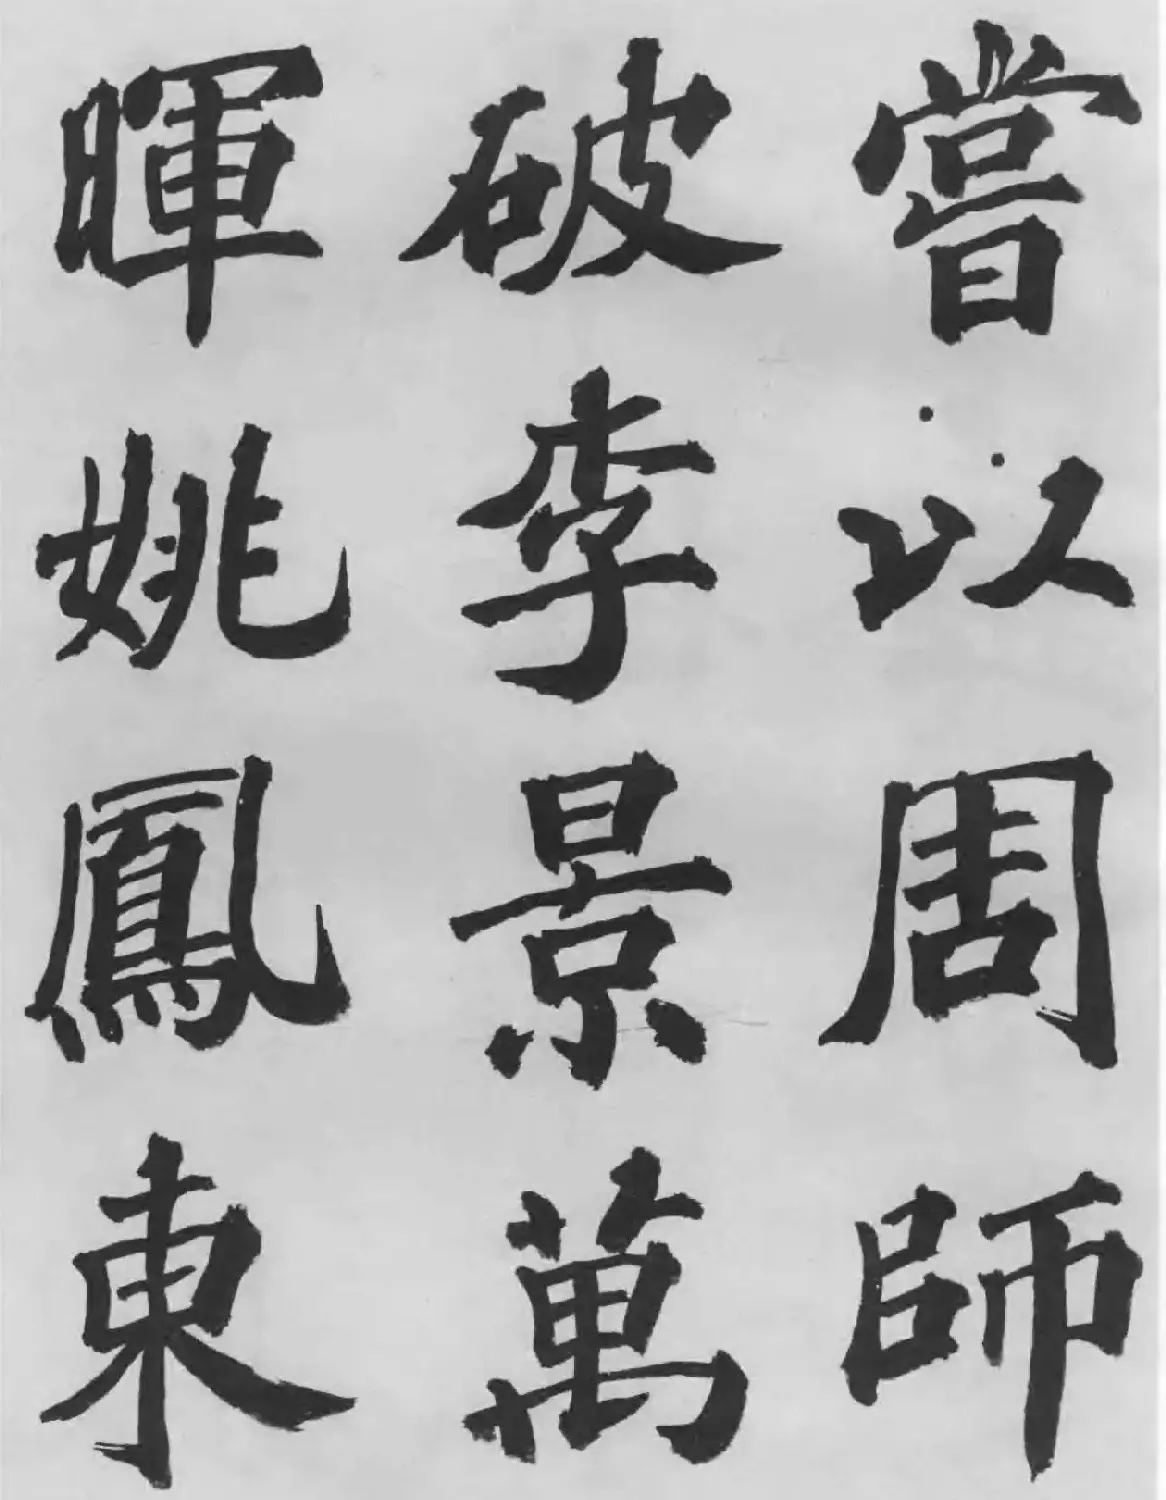 嘗以周師
破李景萬
暉姚鳳東